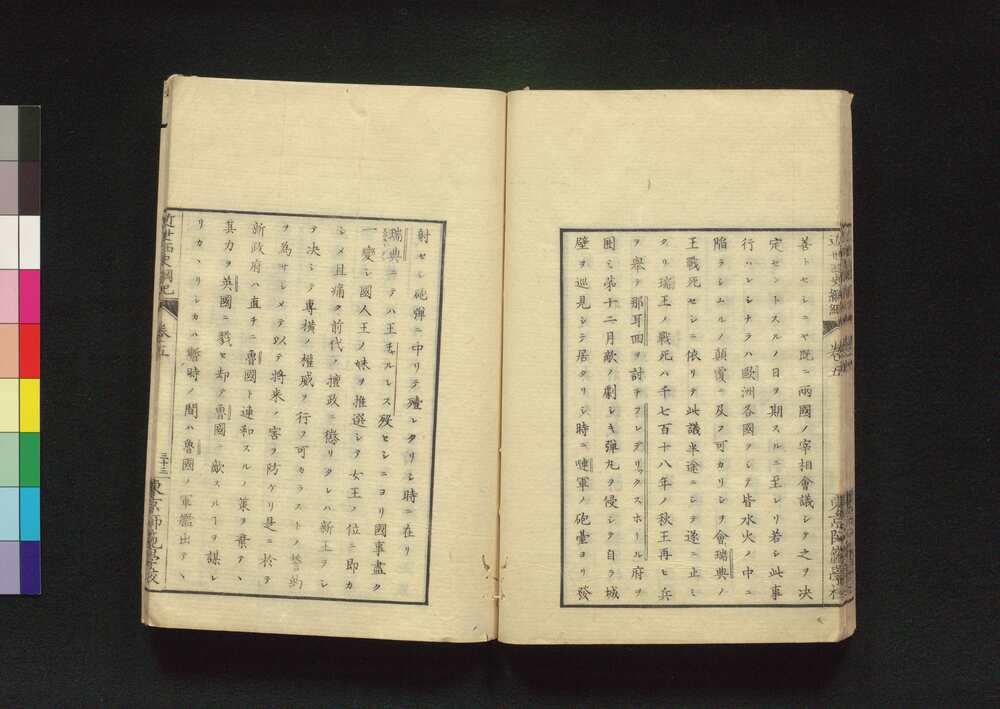 善トセシニヤ既ニ兩國ノ宰相會議シテ之ヲ决
定セントスルノ日ヲ期スルニ至レリ若シ此事
行ハレシナラハ歐洲各國ヲシテ皆水火ノ中ニ
陷ラシムルノ顛覆ニ及フ可カリシヲ會瑞典ノ
王戰死セシニ依リテ此議半途ニシテ遂ニ止ミ
タリ瑞王ノ戰死ハ千七百十八年ノ秋王再ヒ兵
ヲ舉テ那耳回ヲ討チテフレデリックスホール府ヲ
圍ミ第十二月敵ノ劇シキ彈丸ヲ侵シテ自ラ城
壁ヲ巡見シテ居タリシ時ニ嗹軍ノ砲臺ヨリ發
射セシ砲彈ニ中リテ殪レタリシ時ニ在リ
瑞典ニテハ王チャルレス歿セシニヨリ國事盡ク
一變シ國人王ノ妹ヲ推選シテ女王ノ位ニ即カ
シメ且痛ク前代ノ擅政ニ懲リタレハ新主ヲシ
テ决シテ專横ノ權威ヲ行フ可カラストノ誓約
ヲ為サシメテ以テ將來ノ害ヲ防ケリ是ニ於テ
新政府ハ直チニ魯國ト連和スルノ策ヲ棄テヽ
其力ヲ英國ニ戮セ却テ魯國ニ敵スルヿヲ謀レ
リカヽリシカハ暫時ノ間ハ魯國ノ軍艦出テヽ
近世西史綱紀
卷五
三十三
東京師範學校